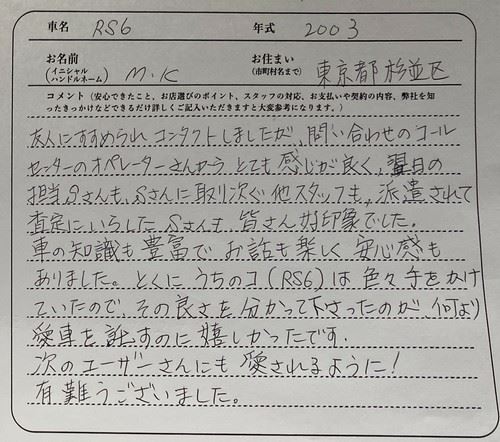 車名 RS6 年式 2003
お名前 (イニシャル ハンドルネーム) M.K お住まい (市町村名まで) 東京都杉並区
コメント (安心できたこと、お店選びのポイント、スタッフの対応、お支払いや契約の内容、弊社を知
ったきっかけなどできるだけ詳しくご記入いただきますと大変参考になります。)
友人にすすめられコンタクトしましたが、問い合わせのコール
センターのオペレーターさんからとても感じが良く、翌日の
担当Sさんも、Sさんに取り次ぐ他スタッフも、派遣されて
査定にいらしたSさんも、皆さん好印象でした。
車の知識も豊富でお話も楽しく安心感も
ありました。とくにうちのコ(RS6)は色々手をかけ
ていたので、その良さを分かって下さったのが、何より
愛車を託すのに嬉しかったです。
次のユーザーさんにも愛されるように!
有難うございました。